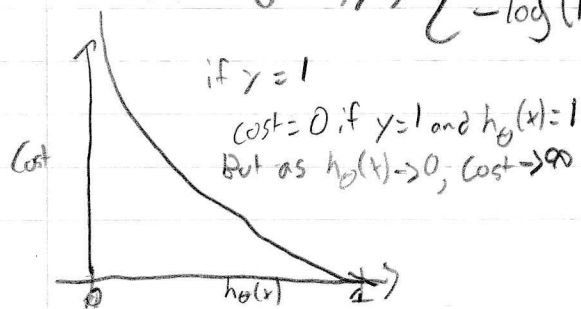 -log(1
if y = 1
cost = 0 if y=1 and hθ(x)=1
But as hθ(x)->0, cost->∞
Cost
0
hθ(x)
1